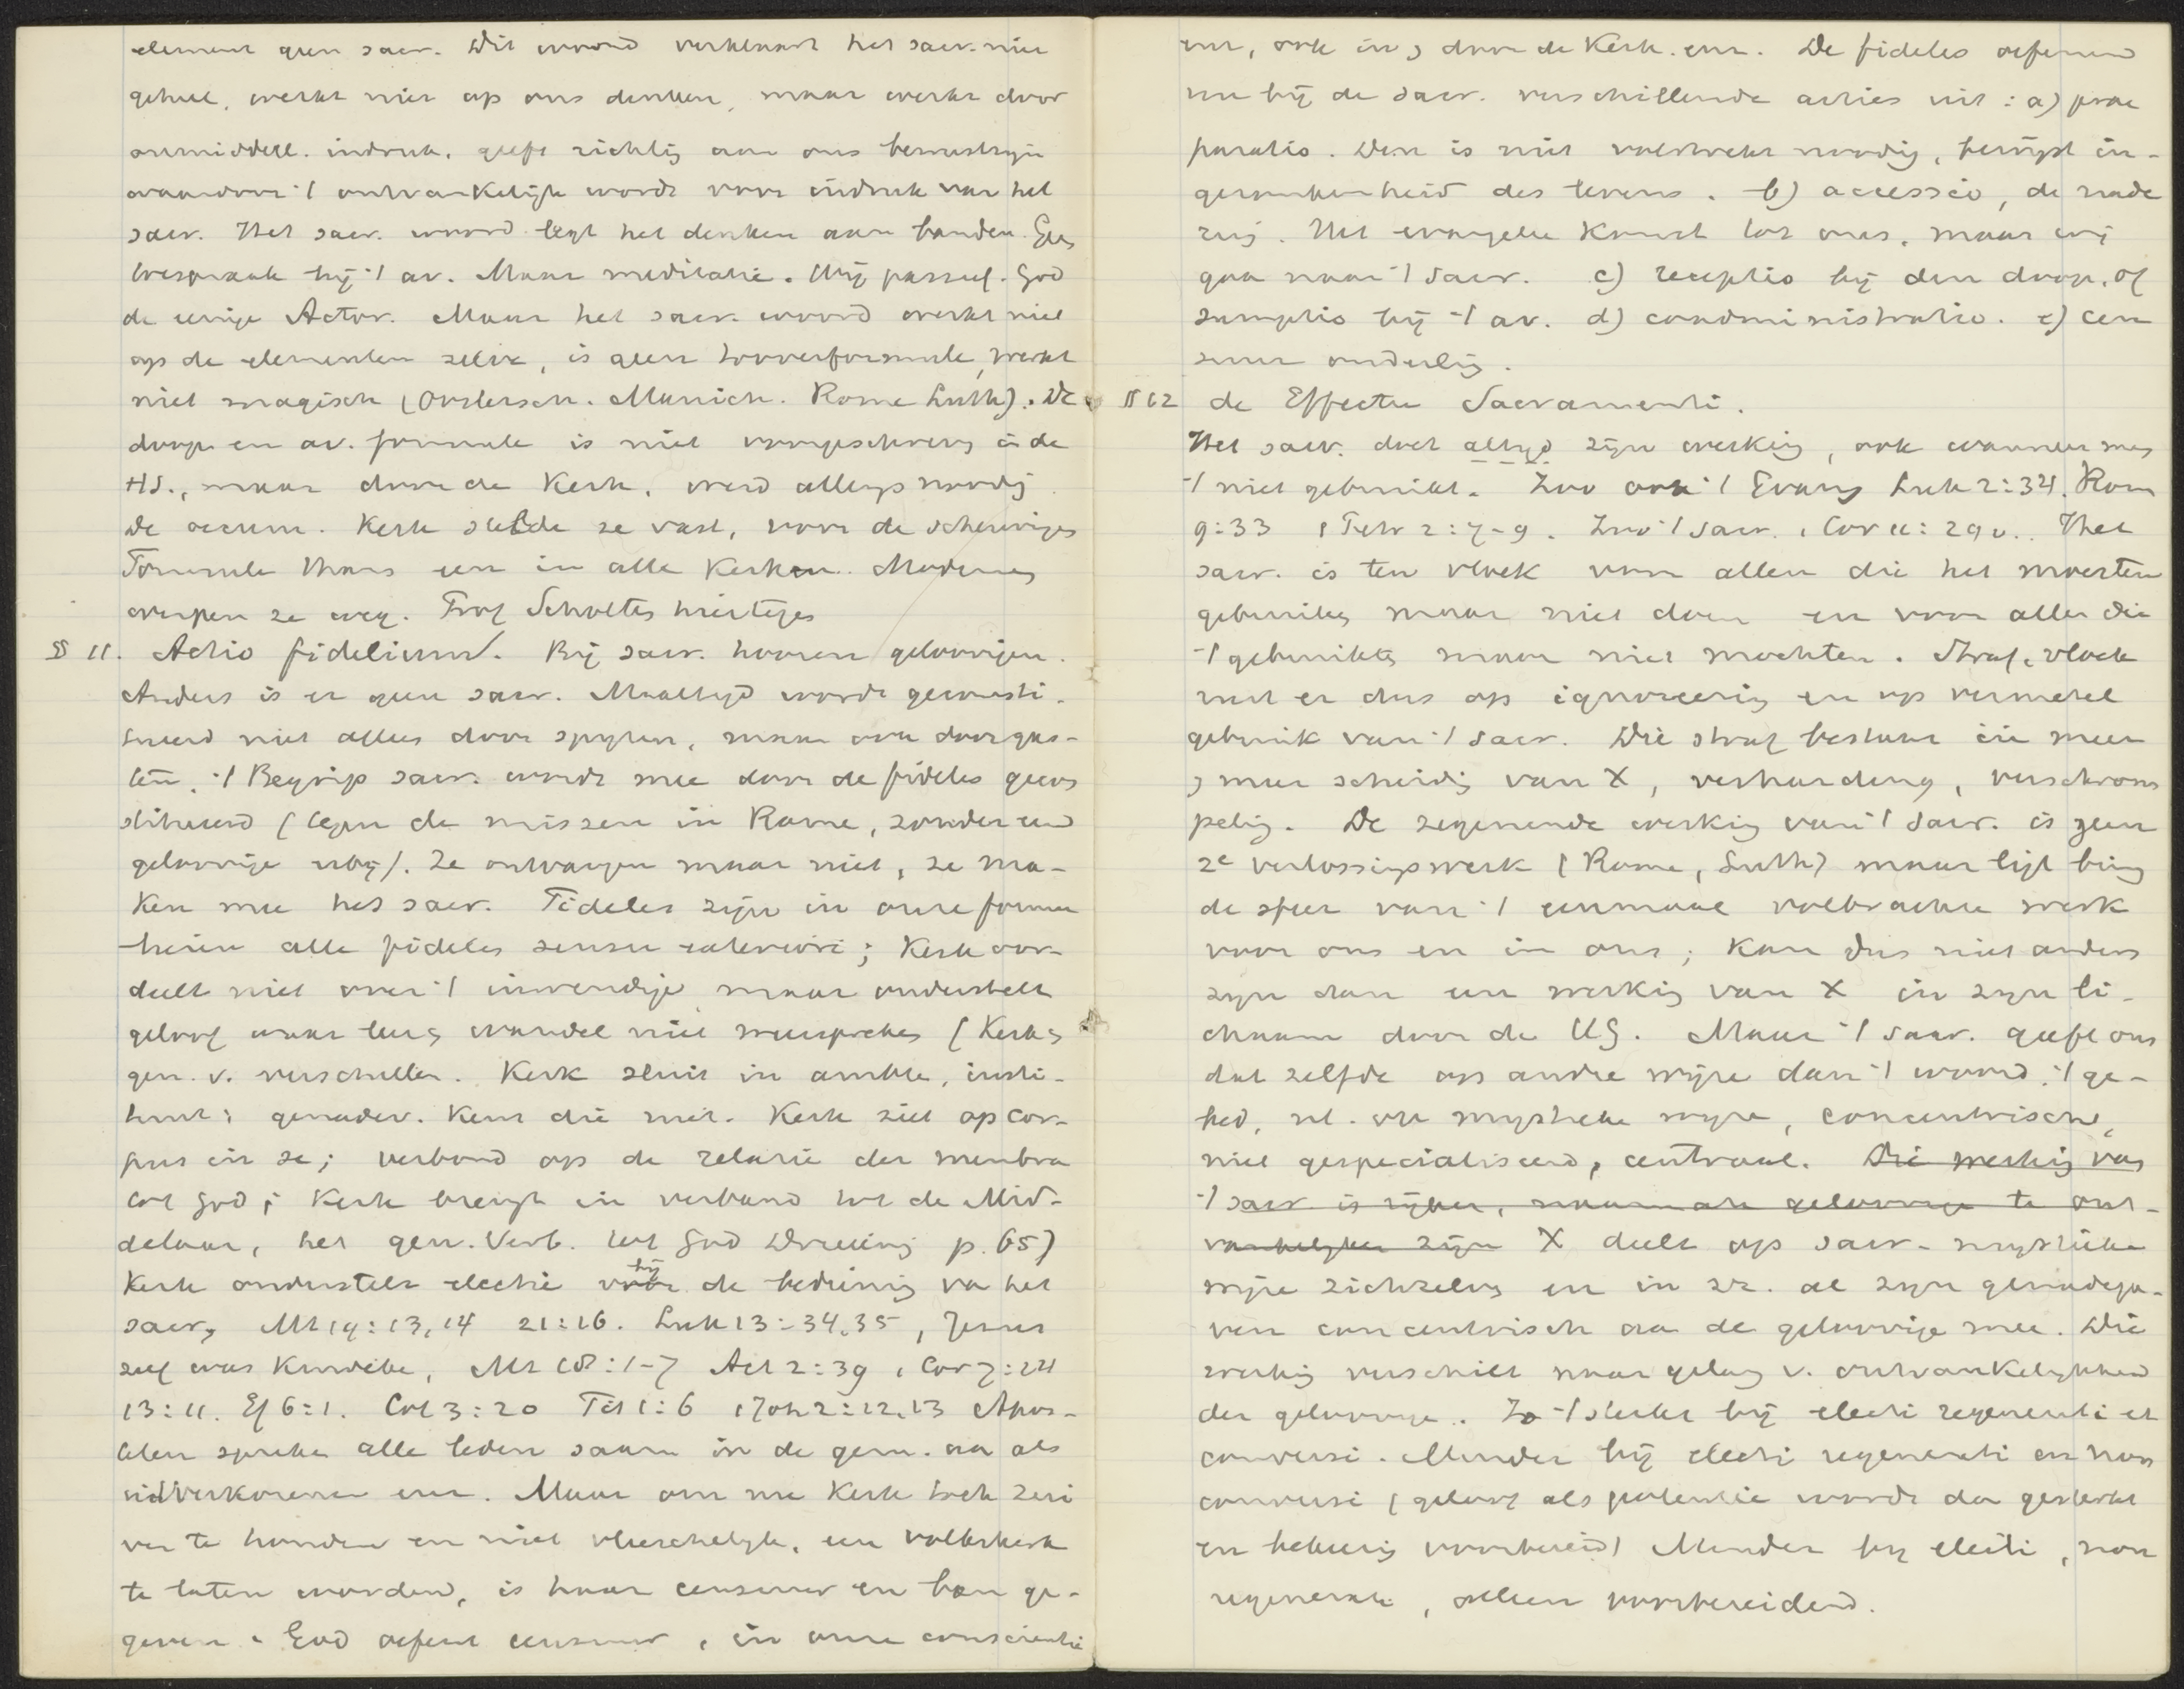 element geen sacr. Dit woord verklaart het sacr. niet
geheel, werkt niet op ons denken, maar werkt door
onmiddell. indruk, geeft richting aan ons bewustzijn
waardoor 't ontvankelijk wordt voor indruk van het
sacr. Het sacr. woord legt het denken aan banden. Geen
toespraak bij 't av. Maar meditatie. Wij passief. God
de eenige Actor. Maar het sacr. woord werkt niet
op de elementen zelve, is geen tooverformule, werkt
niet magisch (Oostersch. Munich. Rome Luth). De
doop en av. formule is niet voorgeschreven in de
HS., maar door de Kerk, werd allengs noodig
De oecum. Kerk stelde ze vast, voor de scheuringen
Formule thans een in alle Kerken. Modernen
werpen ze weg. Prof Scholten
§ 11. Actio fidelium. Bij sacr. hooren geloovigen.
Anders is er geen sacr. Maaltijd wordt geconsti-
tueerd niet alleen door spijzen, maar ook door gas-
ten. 't Begrip sacr. wordt mee door de fideles gecon
stitueerd (tegen de missen in Rome, zonder een
geloovige erbij). Ze ontvangen maar niet, ze ma-
ken mee het sacr. Fideles zijn in onze formu
lieren alle fideles sensu exteriori; Kerk oor-
deelt niet over 't inwendige maar onderstelt
geloof waar leer en wandel niet weerspreken (Kerk en
gen. v. verschillen. Kerk sluit in ambte, insti-
tuut; genadev. kent die niet. Kerk ziet op cor-
pus in se; verbond op de relatie der membra
tot God; Kerk brengt in verband tot de Mid-
delaar, het gen. Verb. tot God Drieëenig p. 65)
Kerk onderstelt electie bij voor de bediening va het
sacr, Mt 19:13,14 21:16. Luk 13:34,35, Jezus
zelf was kindeke, Mt 18:1-7 Act 2:39 1 Cor 7:14
13:11. Ef 6:1. Col 3:20 Tit 1:6 1 Joh 2:12,13 Apos-
telen spreken alle leden saam in de gem. aan als
uitverkorenen enz. Maar om nu Kerk toch zui
ver te houden en niet vleeschelijk, een volkskerk
te laten worden, is haar censuur en ban ge-
geven. God oefent censuur, in onze conscientie
enz, ook in en door de Kerk. enz. De fideles oefenen
nu bij de sacr. verschillende acties uit: a) prae
paratio. Deze is niet volstrekt noodig, bewijst in-
gezonkenheid des levens. b) accessio, de nade
ring. Het evangelie komt tot ons, maar wij
gaan naar 't sacr. c) receptio bij den doop, of
sumptio bij 't av. d) coadministratio. e) cen
suur onderling.
§ 12 de Effectu Sacramenti.
Het sacr. doet altijd zijn werking, ook wanneer men
't niet gebruikt. Zoo ook 't Evang Luk 2:34. Rom
9:33 1 Petr 2:7-9. Zoo 't sacr. 1 Cor 11:29v.. Het
sacr. is ten vloek voor allen die het moesten
gebruiken maar niet doen en voor allen die
't gebruikten maar niet mochten. Straf, vloek
rust er dus op ignoreering en op vermetel
gebruik van 't sacr. Die straf bestaat in meer
en meer scheiding van X, verharding, verschrom
peling. De zegenende werking van 't sacr. is geen
2e verlossingswerk (Rome, Luth) maar ligt binnen
de sfeer van 't eenmaal volbrachte werk
voor ons en in ons; kan dus niet anders
zijn dan een werking van X in zijn li-
chaam door de HG. Maar 't sacr. geeft ons
dat zelfde op andre wijze dan 't woord, 't ge-
bed, nl. op mystieke wijze, concentrische,
niet gespecialiseerd, centraal. Die werking van
't sacr. is rijker, naarmate geloovige te ont-
vankelijker zijn X deelt op sacr. mystieke
wijze zichzelven en in zz. al zijn genadega-
ven concentrisch aan de geloovige mee. Die
werking verschilt naar gelang v. ontvankelijkheid
der geloovige. Zo 't sterkst bij electi regenerati et
conversi. Minder bij electi regenerati en non
conversi (geloof als potentie wordt dan gesterkt
en bekeering voorbereid) Minder bij electi, non
regenerati, alleen voorbereidend.